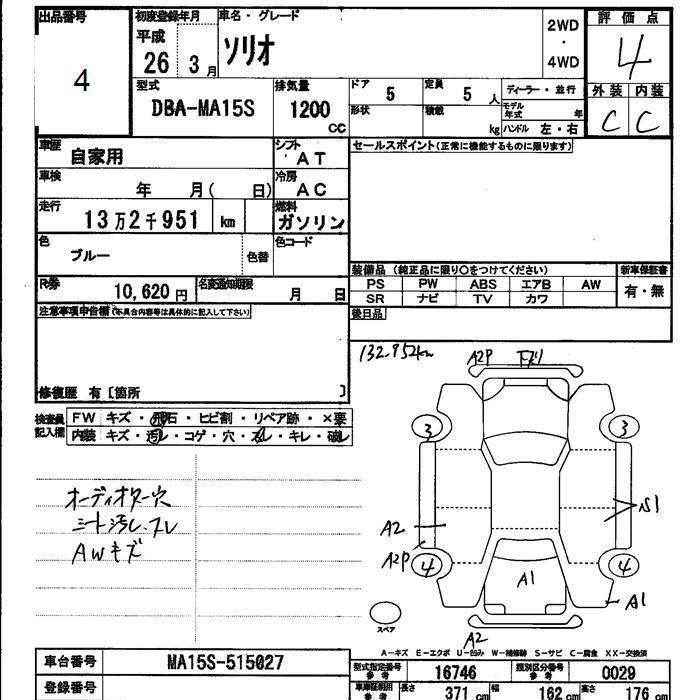 出品番号
4
初度登録年月
平成
26 3 月
車名・グレード
ソリオ
2WD
・
4WD
評価点
4
外装 内装
C C
型式
DBA-MA15S
排気量
1200
CC
ドア
5
定員
5 人
形状
積載
kg
ディーラー・並行
モデル年式 年
ハンドル 左・右
車歴
自家用
シフト
AT
車検
年 月( 日)
冷房
AC
走行
13万2千951 km
燃料
ガソリン
色
ブルー
色替
色コード
R券
10,620 円
名変通知期限
月 日
セールスポイント(正常に機能するものに限ります)
装備品 (純正品に限り○をつけてください)
新車保証書
PS PW ABS エアB AW
SR ナビ TV カワ
有・無
後日品
注意事項申告欄(不具合内容等は具体的に記入して下さい)
修復歴 有〔箇所 〕
検査員記入欄
FW キズ・飛石・ヒビ割・リペア跡・×要
内装 キズ・汚レ・コゲ・穴・スレ・キレ・破レ
オーディオ 穴
シート汚レ、スレ
AWキズ
132.952km
A2P 下スリ
3
3
A2
S1
A2P
4
4
A1
A1
A2
スペア
A-キズ E-エクボ U-凹み W-補修跡 S-サビ C-腐食 XX-交換済
車台番号
MA15S-515027
登録番号
型式指定番号
参考
16746
類別区分番号
参考
0029
車庫証明用
参考
長さ
371 cm
幅
162 cm
高さ
176 cm